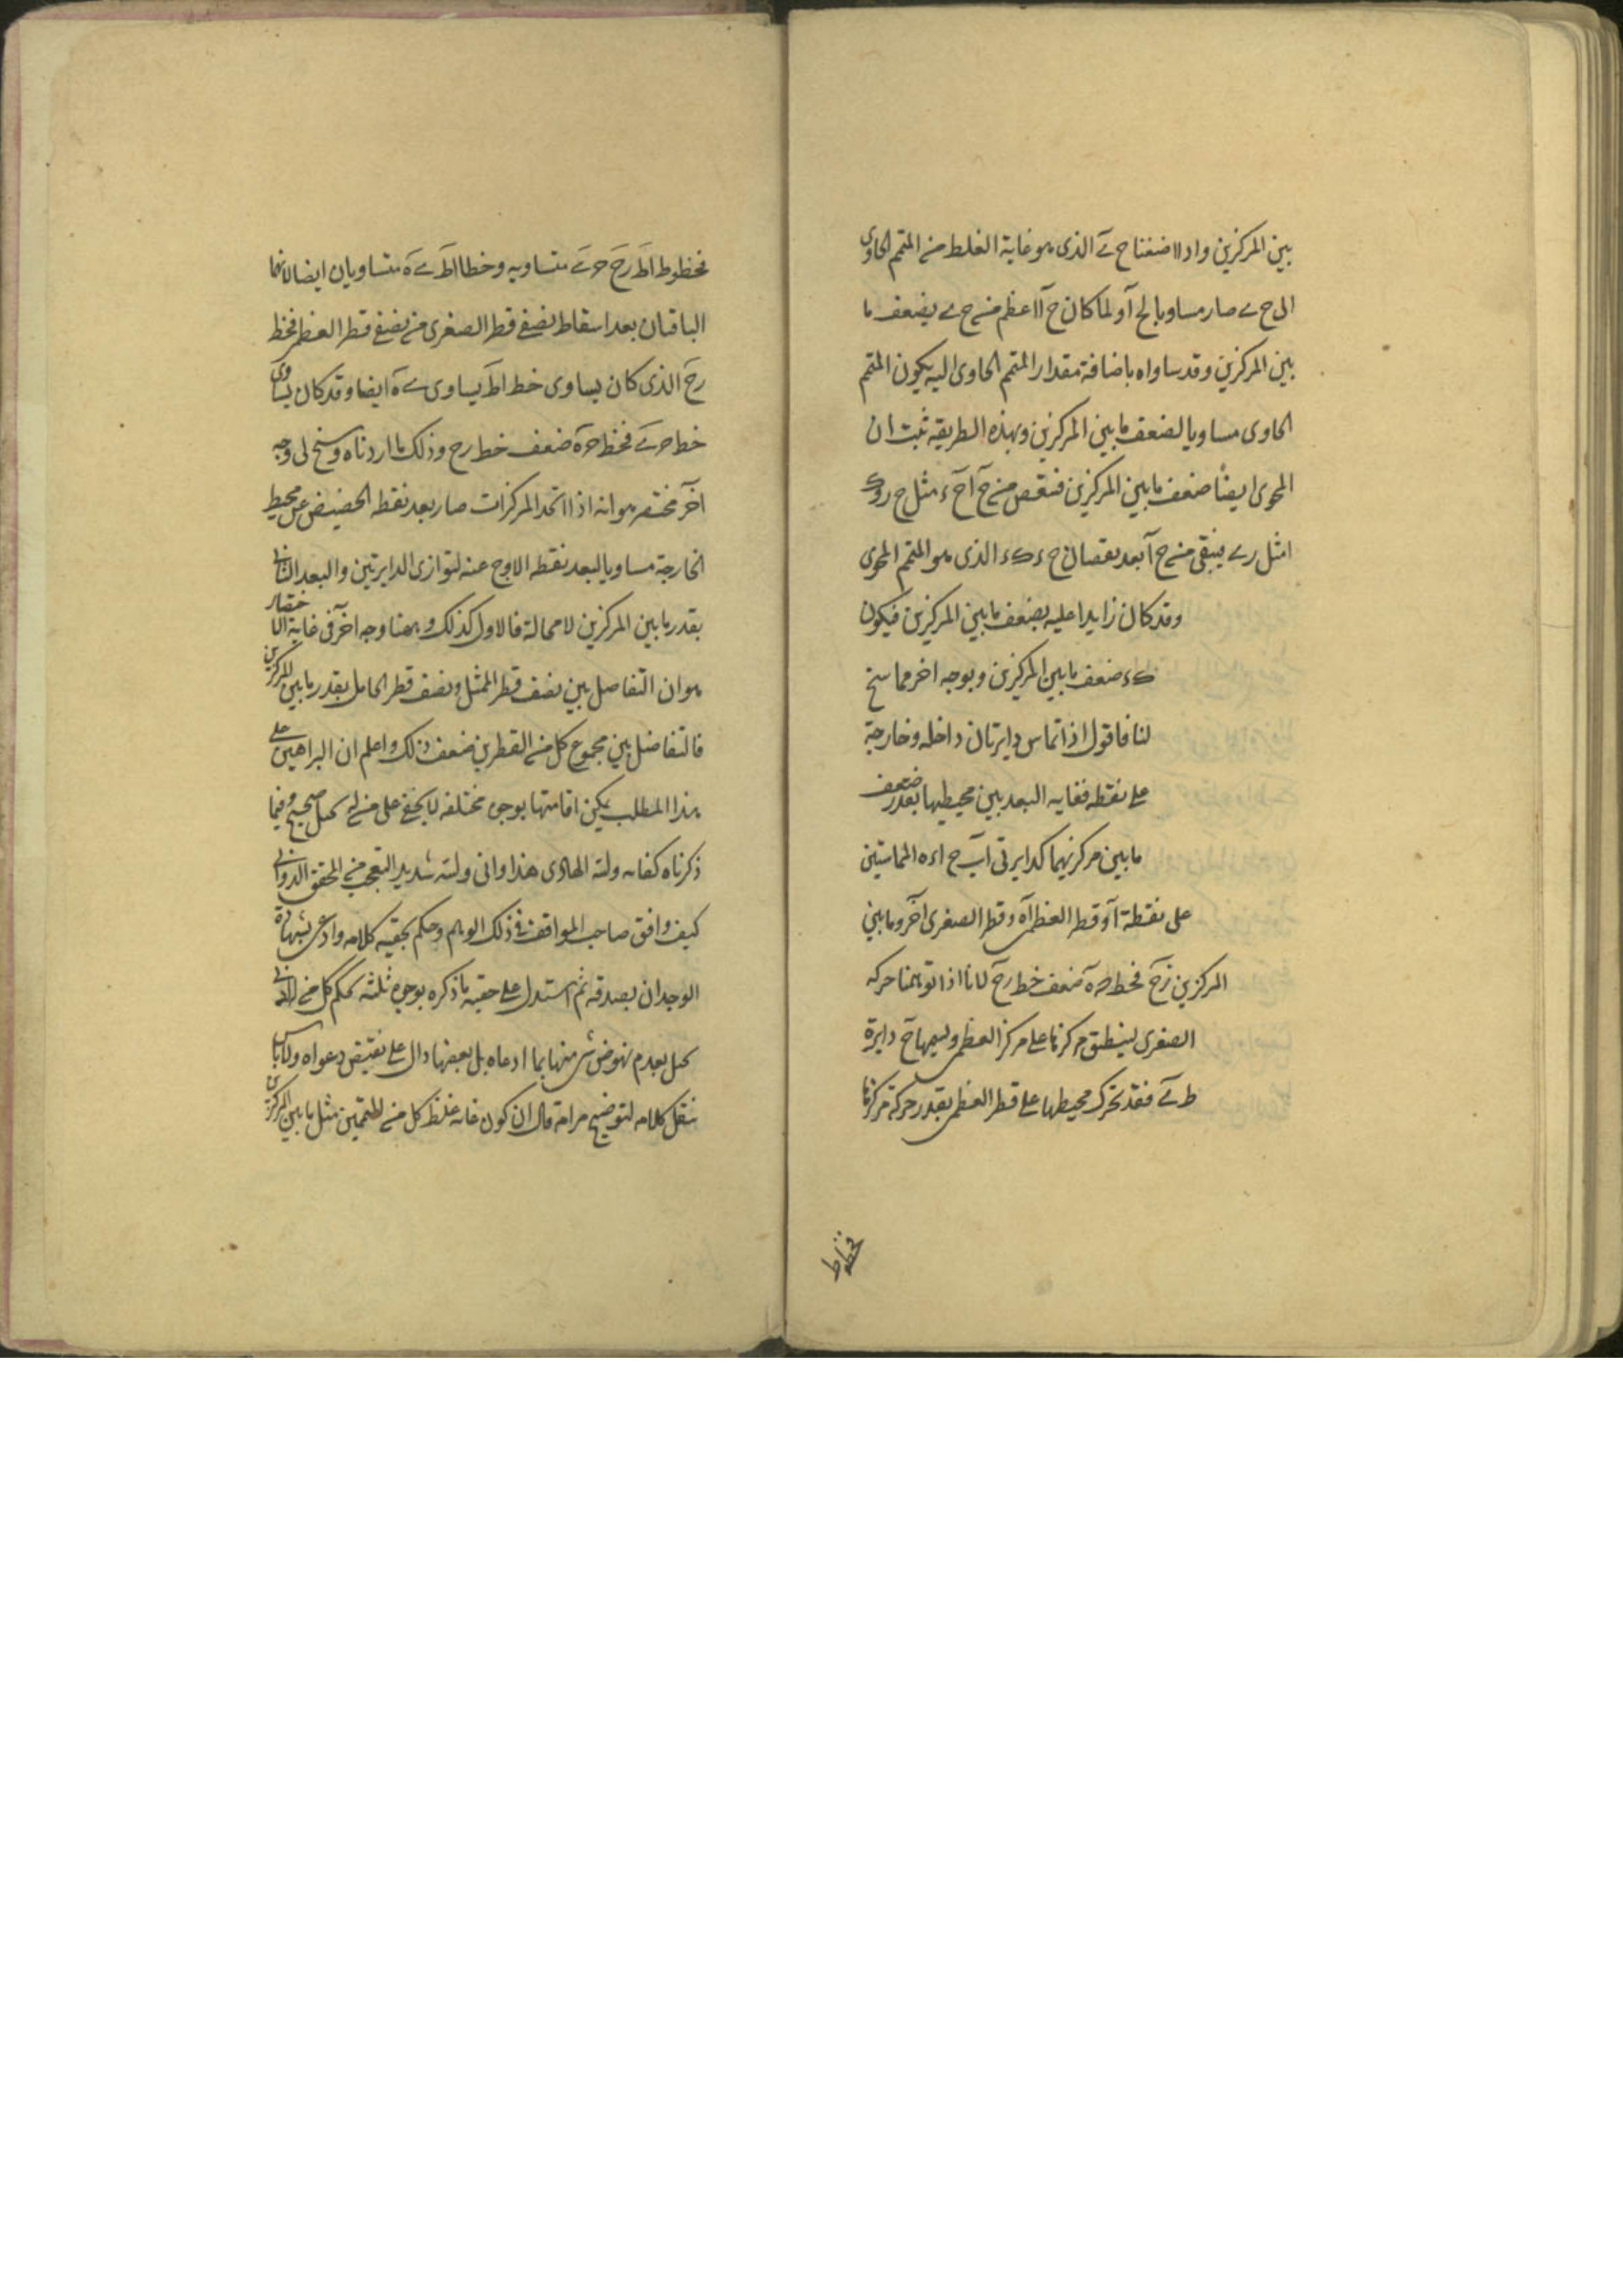 بين المركزين واذا اضفنا ح ى الذى هو غاية الغلظ من المتمم الحاوى
الى ح ى صار مساويا لح آ ولما كان ح آ اعظم من ح ى بضعف ما
بين المركزين وقد ساواه باضافة مقدار المتمم الحاوى اليه يكون المتمم
الحاوى مساويا لضعف ما بين المركزين وبهذه الطريقه ثبت ان
المحوى ايضا ضعف ما بين المركزين فننقص من ح آ ح ء مثل ح ر و ك
ا مثل ر ى يبقى من ح آ بعد نقصان ح ء ك ء الذى هو المتمم المحوى
وقد كان زايدا عليه بضعف ما بين المركزين فيكون
ك ء ضعف ما بين المركزين وبوجه اخر مما سنح
لنا فاقول اذا تماس دايرتان داخله وخارجة
على نقطه فغايه البعد بين محيطيهما بقدر ضعف
ما بين مركزيهما كدايرتى اب ح ا ء ه المماستين
على نقطة آ وقطر العظمى آه وقطر الصغرى آحر وما بين
المركزين رح فخط ح ه ضعف خط رح لانا اذا توهمنا حركه
الصغرى لينطبق مركزها على مركز العظمى ولسمها ح دايرة
ط ى فقد تحرك محيطها على قطر العظمى بقدر حركة مركزها
فخطوط
فخطوط اط رح ح ى متساويه وخطا اط ى ه متساويان ايضا لانهما
الباقيان بعد اسقاط نصفى قطر الصغرى من نصفى قطر العظمى فخط
رح الذى كان يساوى خط اط يساوى ى ه ايضا وقد كان يساوى
خط ح ى فخط ح ه ضعف خط رح وذلك ما اردناه وسنح لى وجه
آخر مختصر هو انه اذا اتحد المركزات صار بعد نقطه الحضيض عن محيط
الخارجة مساويا لبعد نقطه الاوج عنه لتوازى الدايرتين والبعد الثانى
بقدر ما بين المركزين لا محالة فالاول كذلك وههنا وجه آخر فى غاية الاختصار
هو ان التفاضل بين نصف قطر الممثل ونصف قطر الحامل بقدر ما بين المركزين
فالتفاضل بين مجموع كل من القطرين ضعف ذلك واعلم ان البراهين على
هذا المطلب يمكن اقامتها بوجوه مختلفه لا يخفى على من له تخيل صحيح وفيما
ذكرناه كفايه ولله الهادى هذا وانى ولله شديد التعجب من المحقق الدوانى
كيف وافق صاحب المواقف فى ذلك الوهم وحكم بحقيه كلامه وادعى شهادة
الوجدان بصدقه ثم استدل على حقيه ما ذكره بوجوه ثلثه يحكم كل من له ادنى
تخيل بعدم نهوض شى منها بما ادعاه بل بعضها دال على نقيض دعواه ولا باس
بنقل كلامه لتوضيح مرامه قال ان كون غايه غلظ كل من المتممين مثل ما بين المركزين